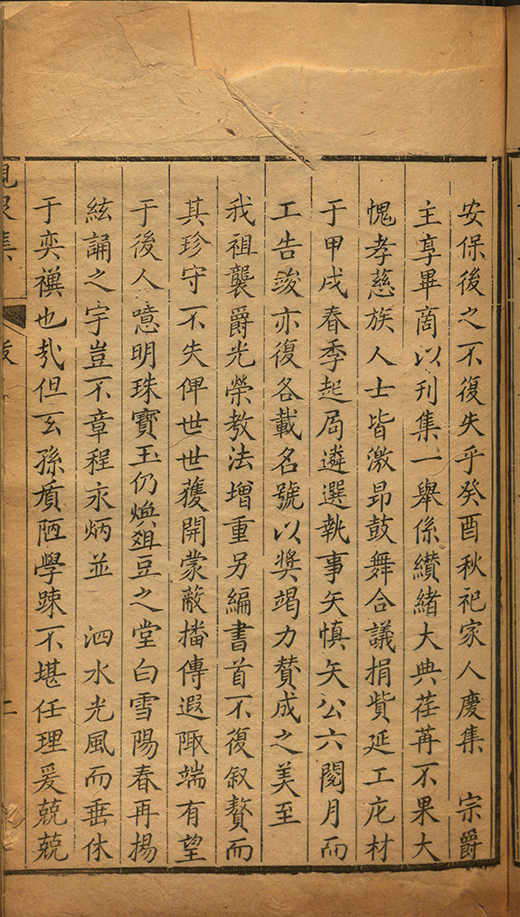 安保後之不復失乎癸酉秋祀家人慶集　宗爵
主享畢商以刊集一舉係纘緒大典荏苒不果大
愧孝慈族人士皆激昂鼓舞合議捐貲延工庀材
于甲戌春季起局遴選執事矢慎矢公六閱月而
工告竣亦復各載名號以獎竭力賛成之美至
我祖襲爵光榮教法增重另編書首不復叙贅而
其珍守不失俾世世獲開蒙蔽播傳遐陬端有望
于後人噫明珠寶玉仍煥俎豆之堂白雪陽春再揚
絃誦之宇豈不章程永炳並　泗水光風而垂休
于奕禩也㢤但玄孫質陋學踈不堪任理爰兢兢
集
跋
二